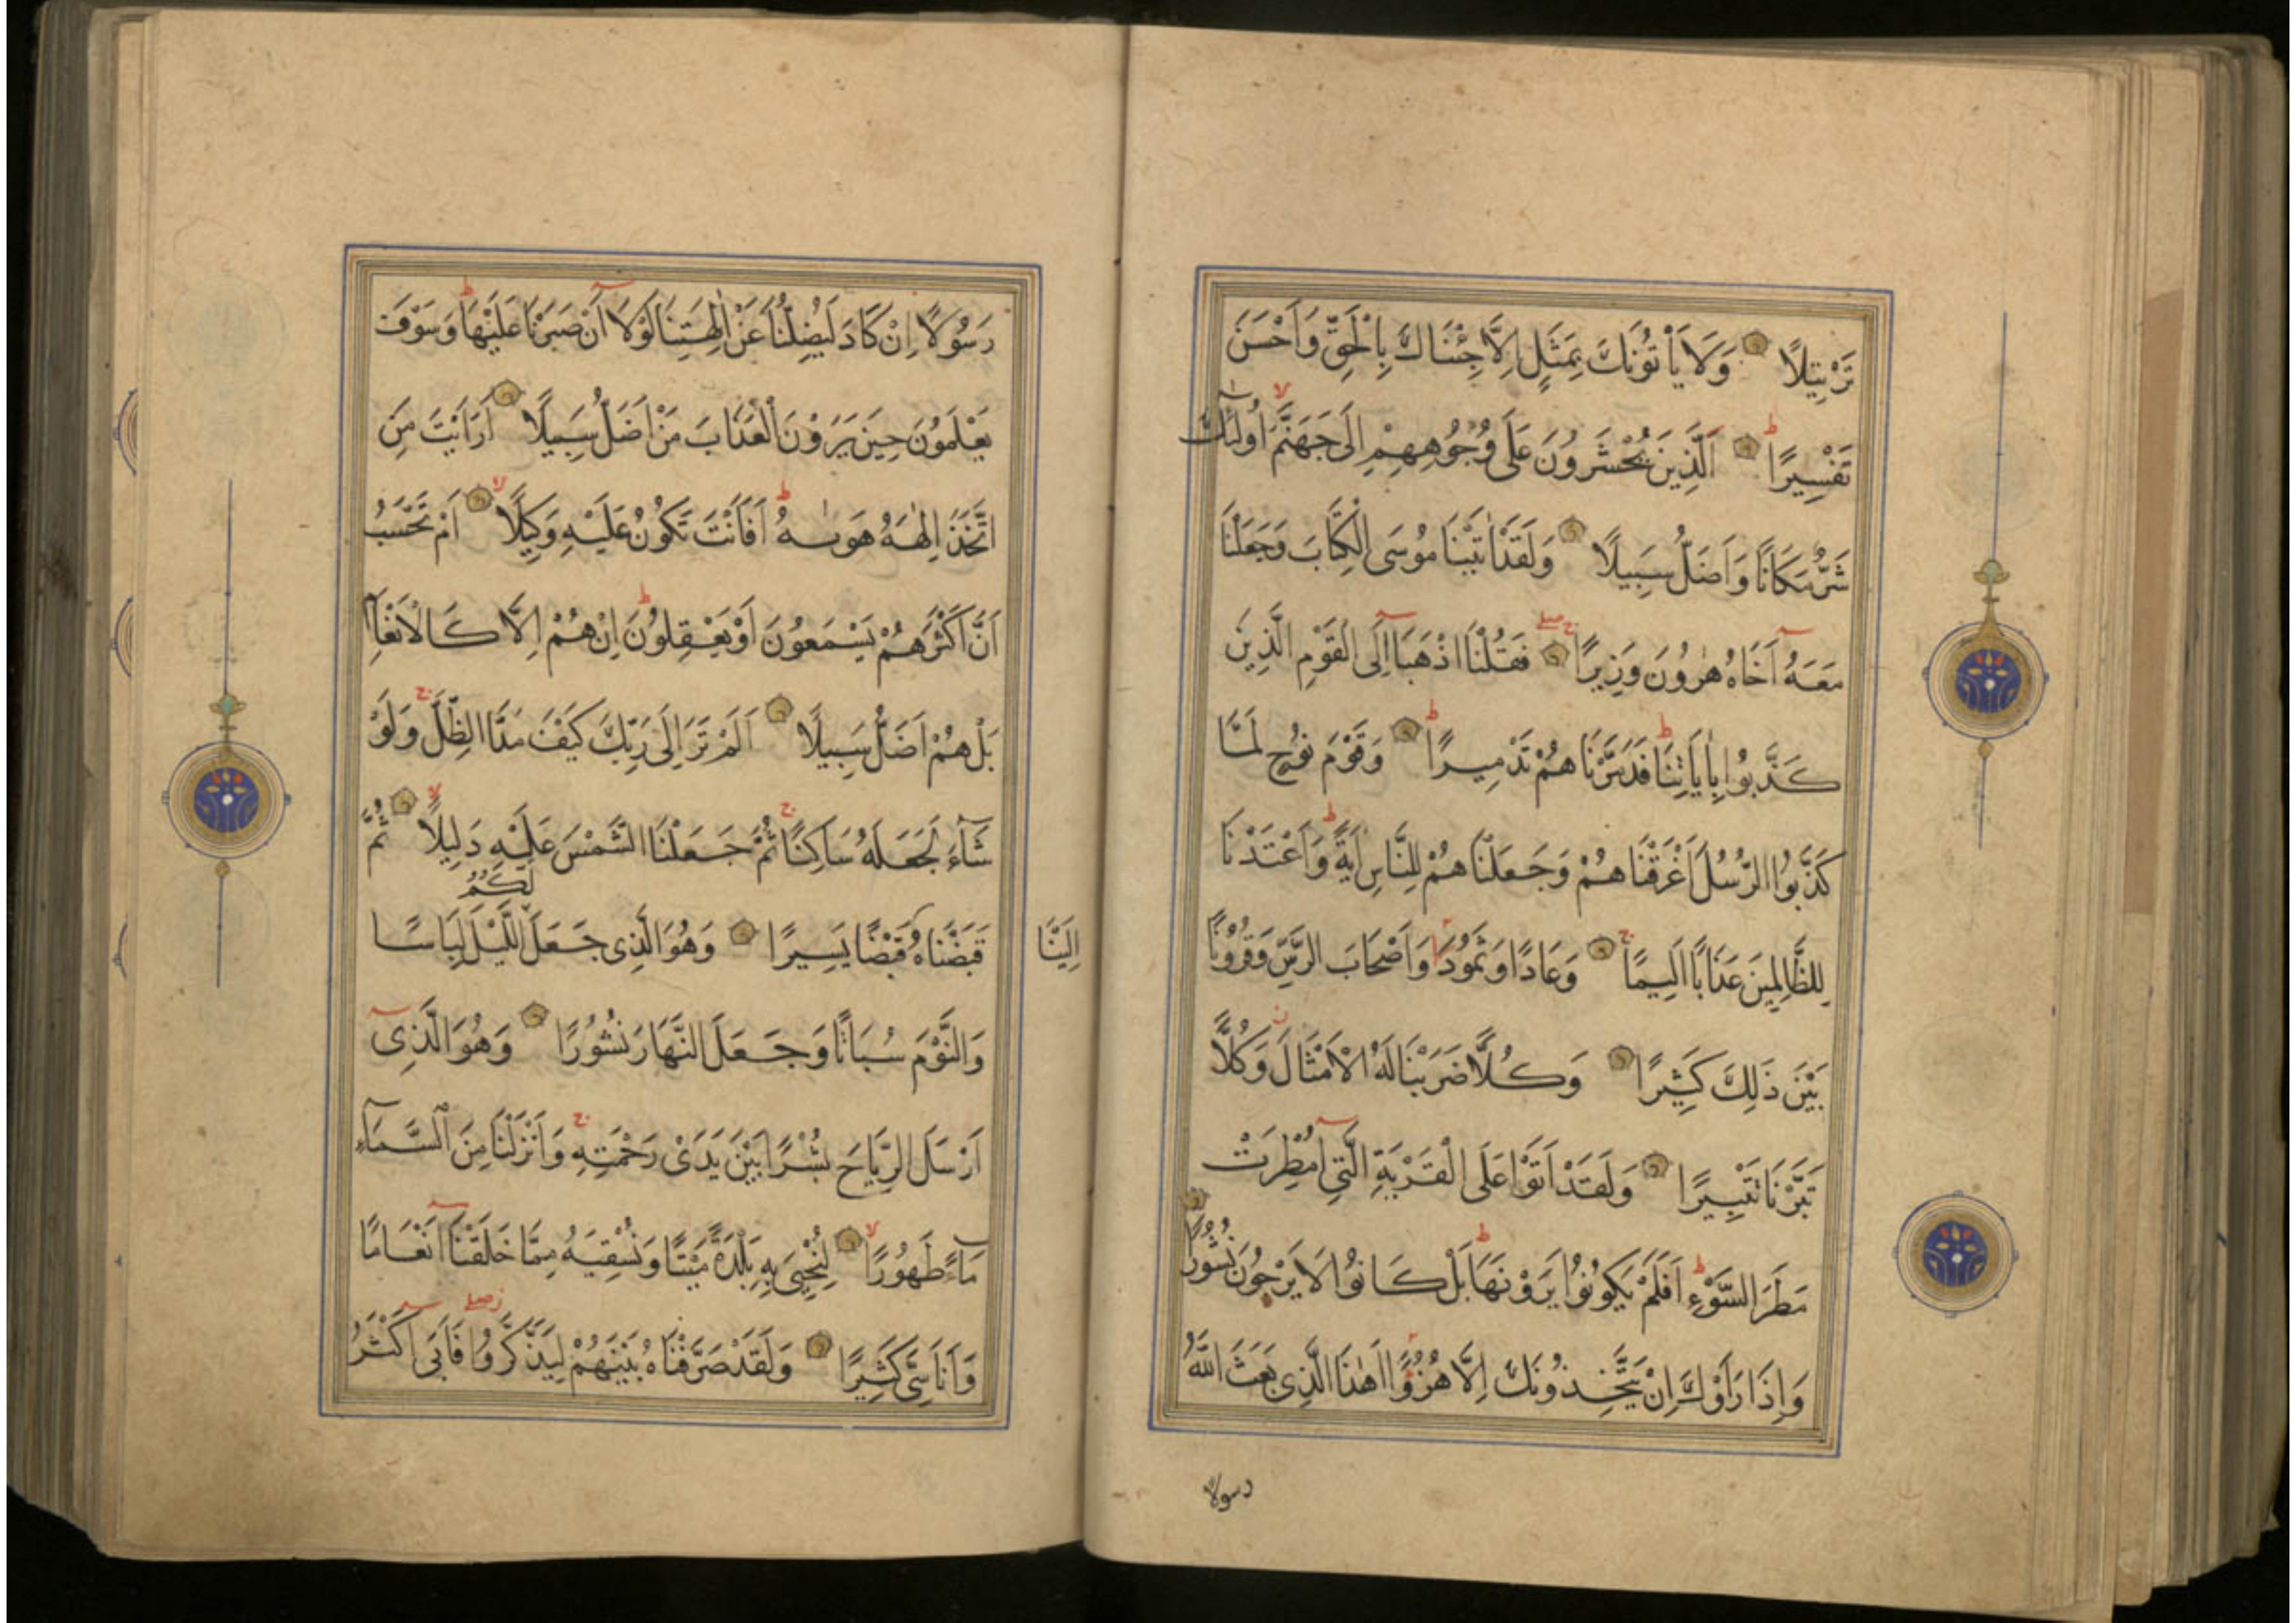 تَرْتِيلًا وَلَا يَأْتُونَكَ بِمَثَلٍ اِلَّا جِئْنَاكَ بِالْحَقِّ وَاَحْسَنَ
تَفْسِيرًا ط اَلَّذِينَ يُحْشَرُونَ عَلَى وُجُوهِهِمْ اِلَى جَهَنَّمَ لا اُولٰئِكَ
شَرٌّ مَكَانًا وَاَضَلُّ سَبِيلًا وَلَقَدْ اٰتَيْنَا مُوسَى الْكِتَابَ وَجَعَلْنَا
مَعَهُ اَخَاهُ هٰرُونَ وَزِيرًا ج صلے فَقُلْنَا اذْهَبَا اِلَى الْقَوْمِ الَّذِينَ
كَذَّبُوا بِاٰيَاتِنَا ط فَدَمَّرْنَاهُمْ تَدْمِيرًا ط وَقَوْمَ نُوحٍ لَمَّا
كَذَّبُوا الرُّسُلَ اَغْرَقْنَاهُمْ وَجَعَلْنَاهُمْ لِلنَّاسِ اٰيَةً ط وَاَعْتَدْنَا
لِلظَّالِمِينَ عَذَابًا اَلِيمًا ج وَعَادًا وَثَمُودَا وَاَصْحَابَ الرَّسِّ وَقُرُونًا
بَيْنَ ذَلِكَ كَثِيرًا وَكُلًّا ضَرَبْنَا لَهُ الْاَمْثَالَ ز وَكُلًّا
تَبَّرْنَا تَتْبِيرًا وَلَقَدْ اَتَوْا عَلَى الْقَرْيَةِ الَّتِي اُمْطِرَتْ
مَطَرَ السَّوْءِ ط اَفَلَمْ يَكُونُوا يَرَوْنَهَا ط بَلْ كَانُوا لَا يَرْجُونَ نُشُورًا
وَاِذَا رَاَوْكَ اِنْ يَتَّخِذُونَكَ اِلَّا هُزُوًا اَهٰذَا الَّذِي بَعَثَ اللّٰهُ
رسولا
رَسُولًا اِنْ كَادَ لَيُضِلُّنَا عَنْ اٰلِهَتِنَا لَوْلَا اَنْ صَبَرْنَا عَلَيْهَا ط وَسَوْفَ
يَعْلَمُونَ حِينَ يَرَوْنَ الْعَذَابَ مَنْ اَضَلُّ سَبِيلًا اَرَاَيْتَ مَنِ
اتَّخَذَ اِلٰهَهُ هَوٰيهُ ط اَفَاَنْتَ تَكُونُ عَلَيْهِ وَكِيلًا لا اَمْ تَحْسَبُ
اَنَّ اَكْثَرَهُمْ يَسْمَعُونَ اَوْ يَعْقِلُونَ ط اِنْ هُمْ اِلَّا كَالْاَنْعَامِ
بَلْ هُمْ اَضَلُّ سَبِيلًا اَلَمْ تَرَ اِلَى رَبِّكَ كَيْفَ مَدَّ الظِّلَّ ج وَلَوْ
شَآءَ لَجَعَلَهُ سَاكِنًا ج ثُمَّ جَعَلْنَا الشَّمْسَ عَلَيْهِ دَلِيلًا لا ثُمَّ
قَبَضْنَاهُ اِلَيْنَا قَبْضًا يَسِيرًا وَهُوَ الَّذِي جَعَلَ لَكُمُ اللَّيْلَ لِبَاسًا
وَالنَّوْمَ سُبَاتًا وَجَعَلَ النَّهَارَ نُشُورًا وَهُوَ الَّذِي
اَرْسَلَ الرِّيَاحَ بُشْرًا بَيْنَ يَدَيْ رَحْمَتِهِ ج وَاَنْزَلْنَا مِنَ السَّمَآءِ
مَآءً طَهُورًا لا لِنُحْيِيَ بِهِ بَلْدَةً مَيْتًا وَنُسْقِيَهُ مِمَّا خَلَقْنَا اَنْعَامًا
وَاَنَاسِيَّ كَثِيرًا وَلَقَدْ صَرَّفْنَاهُ بَيْنَهُمْ لِيَذَّكَّرُوا ز صلے فَاَبَى اَكْثَرُ